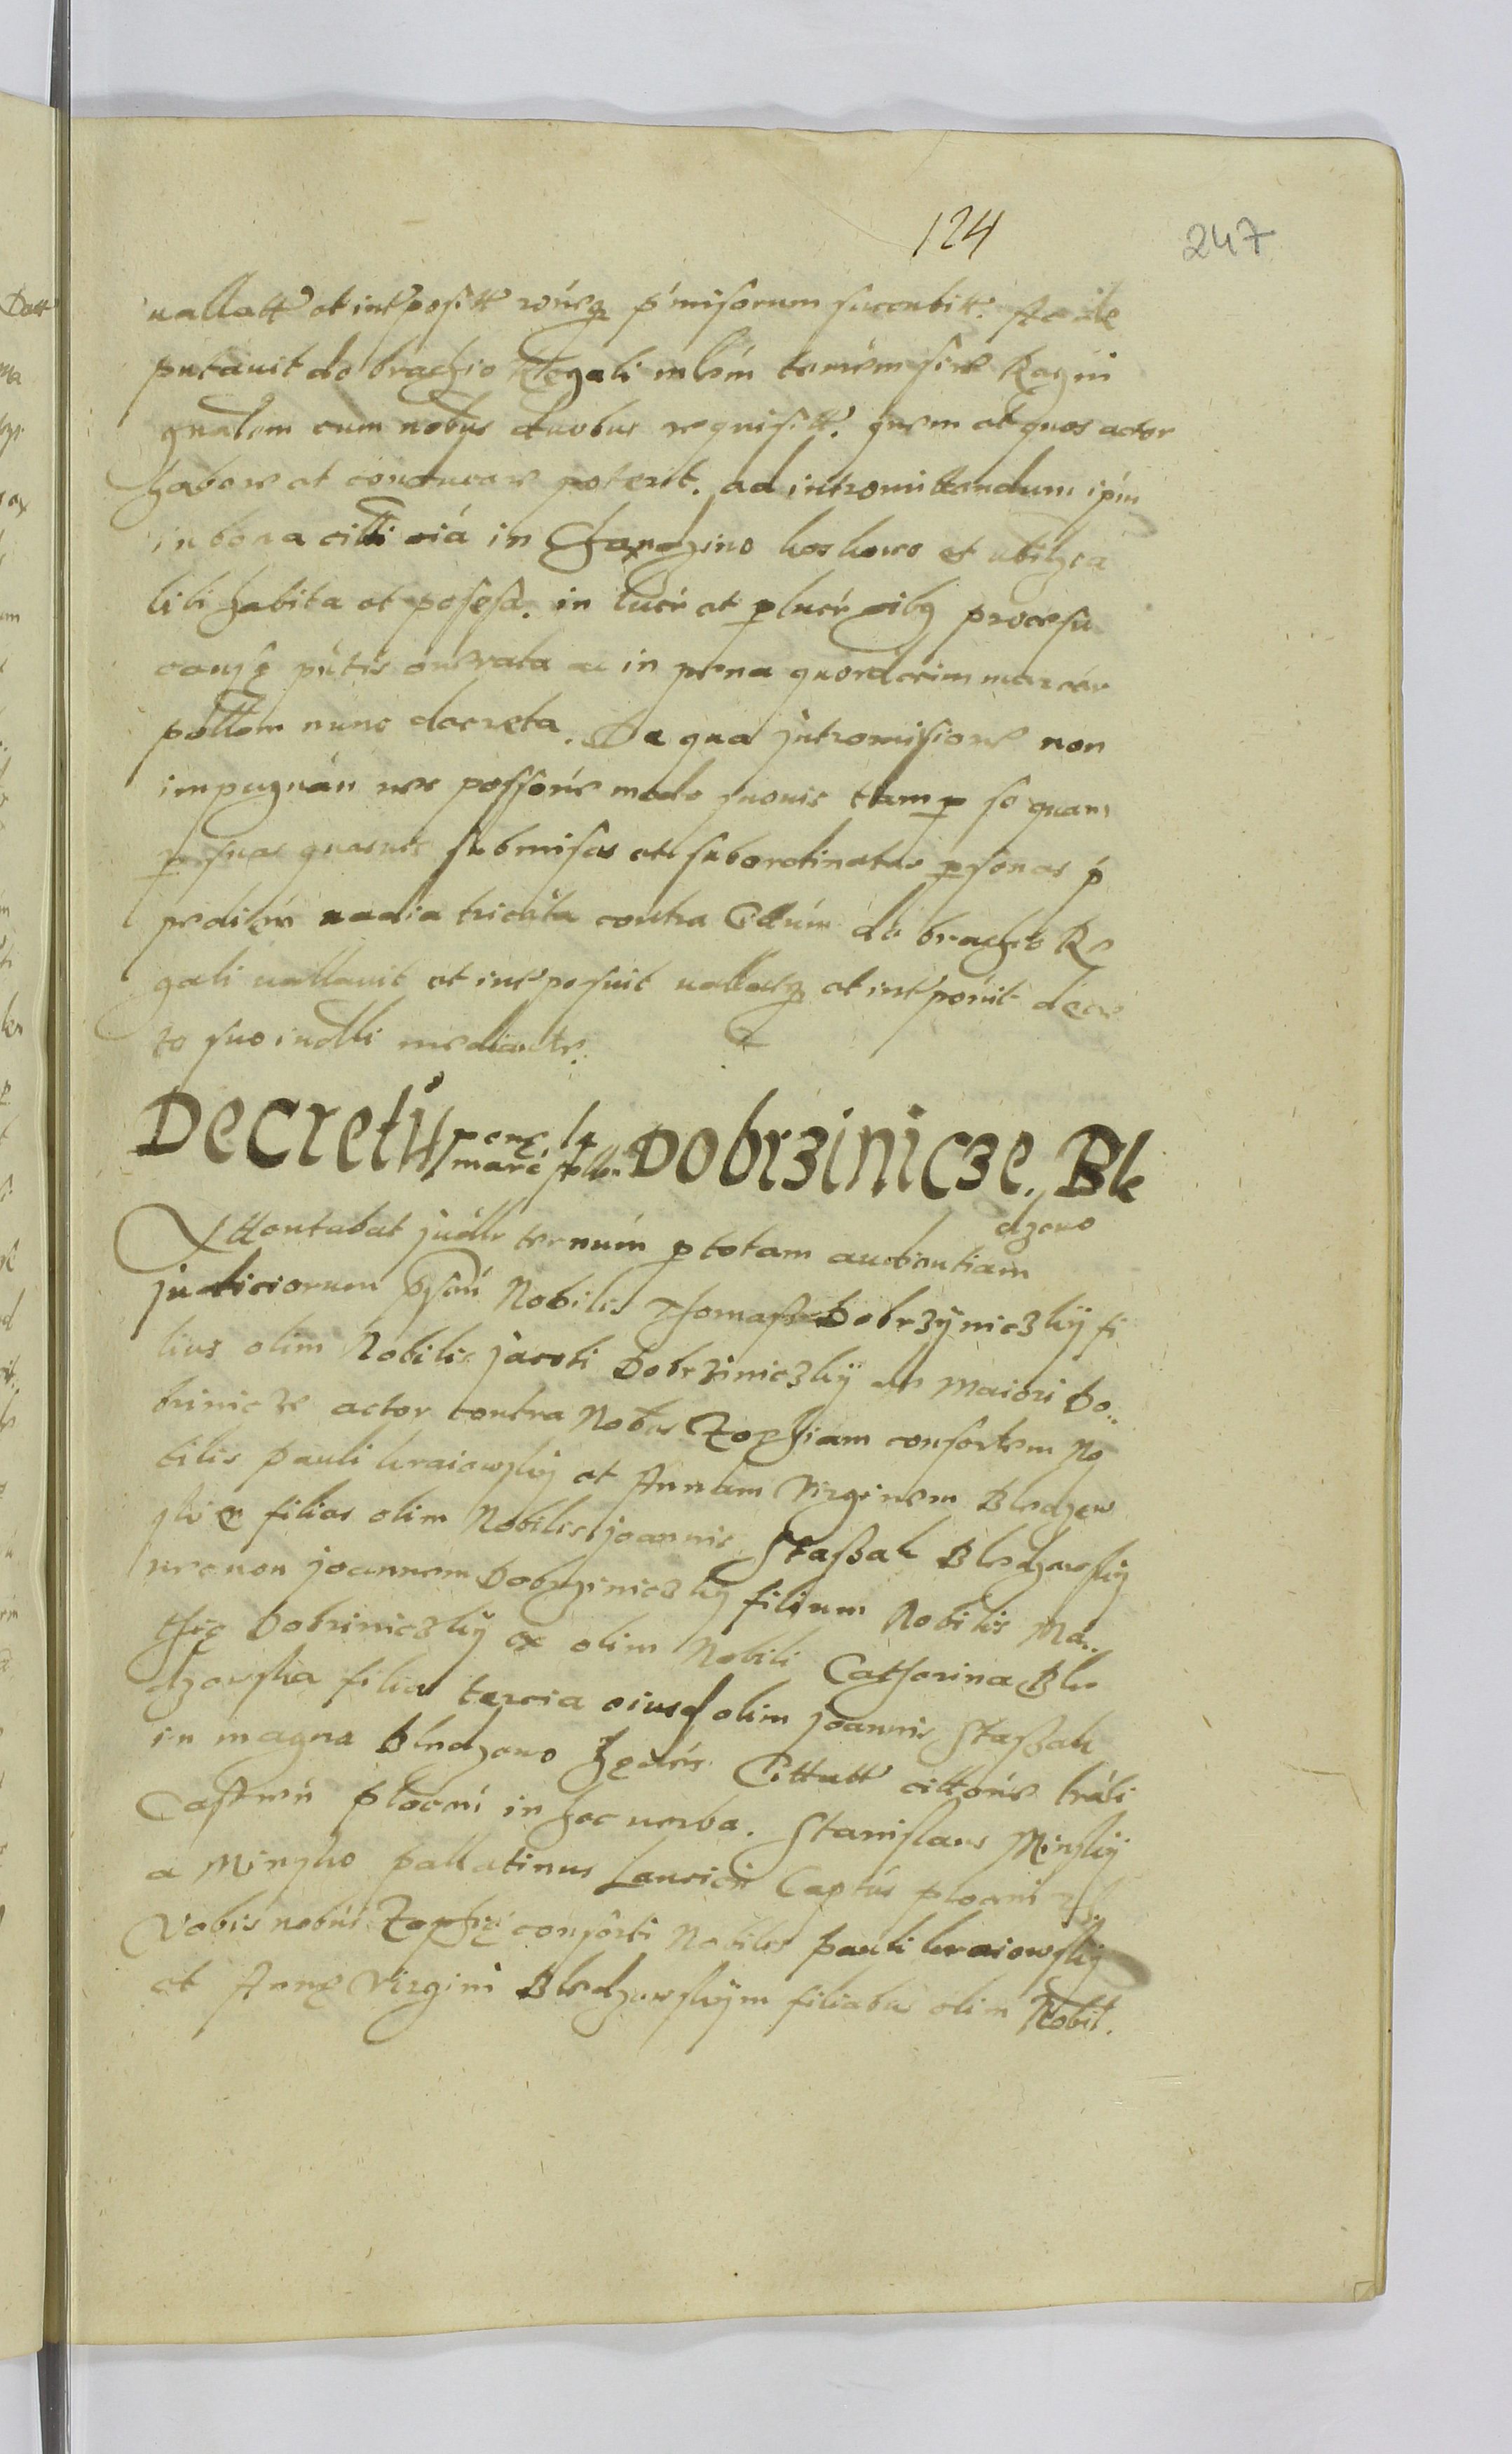 124
247
uallatt et intposit p̃misorum sucenbitt. Ac de
putauit de brachio Regali mlem Regni
gnalem cum nobus duobus requisitt. quem et quos actor
habere et conducere poterit. ad intromittendum ipm
in bona citti oia in koskowo et ubilzea
libi habita et posesa. in lucr et plucr oibq procesu
onerata ac in pena quordecim marcar
pollem nunc decreta. De qua jntromisione non
impugnan nec modo quouis tam p se quam
p suas quasuis submisas et subordinatas psonas p
uadia tricata contra Cittum de brachio Re
gali uallauit et intposuit uallatq et intponit decre
to suo iudlli mediante.
Decretu pene 14 marc pollem Dobrzinicze, Ble
dzeuo
Attentabat judlr ternum p totam audientiam
judiciorum psen Nobilis Thomas Dobrzyniczkÿ fi
lius olim Nobilis jacobi Dobrziniczkÿ de Maiori Do..
brinicze actor contra Nobes Zophiam consortem No
bilis Pauli kraiowskÿ et Annam Virginem Bledzew
skie filias olim Nobilis joannis Staßak Bledzewskÿ
necnon joannem Dobrziniczkÿ filium Nobilis Ma..
thie Dobriniczkÿ ex olim Nobili Catherina Ble
dzewska filia tercia eiusd olim joannis Staßak
in magna Bledzewo heredis Cittatt cittōne trali
Castren plocen in hec uerba. Stanislaus Minskÿ
a Minsko pallatinus Lancicien Captus plocen
Vobis nobus Zophie consorti Nobilis Pauli kraiowskÿ
et Anne Virgini Bledzewskÿm filiabus olim Nobil.